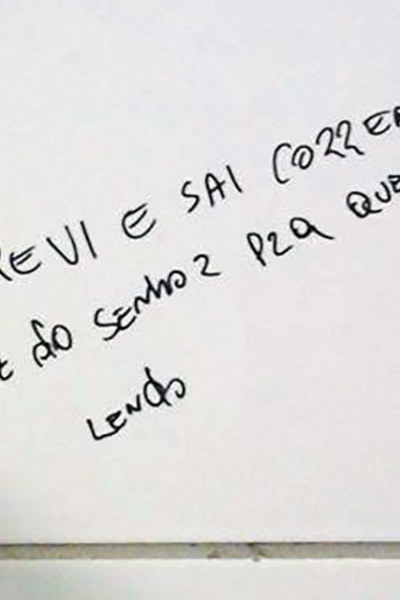 REVI E SAI CORRE
DO SENHOR PRA QUE
LENDO